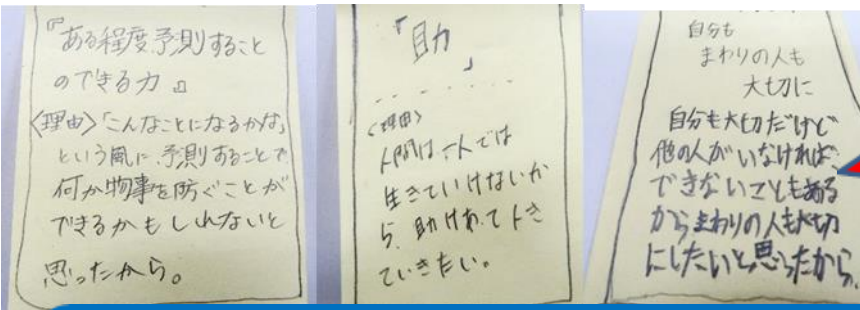 『ある程度予測すること
のできる力』
〈理由〉「こんなことになるかな」
という風に、予測することで
何か物事を防ぐことが
できるかもしれないと
思ったから。
『助
』
〈理由〉
人間は一人では
生きていけないか
ら、助けあって
ていきたい。
自分も
まわりの人も
大切に
自分も大切だけど
他の人がいなければ、
できないこともある
からまわりの人も大切
にしたいと思ったから。